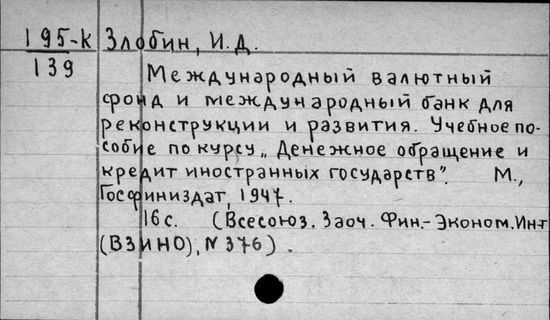 195-К Злобин, И.Д.
139
Международный валютный
фонд и международный банк для
реконструкции и развития. Учебное по-
собие по курсу „Денежное обращение и
кредит иностранных государств". М.,
Госфиниздат, 1947.
16 с. (Всесоюз. Заоч. Фин.-Эконом. Ин-т
(ВЗИНО), N 376).